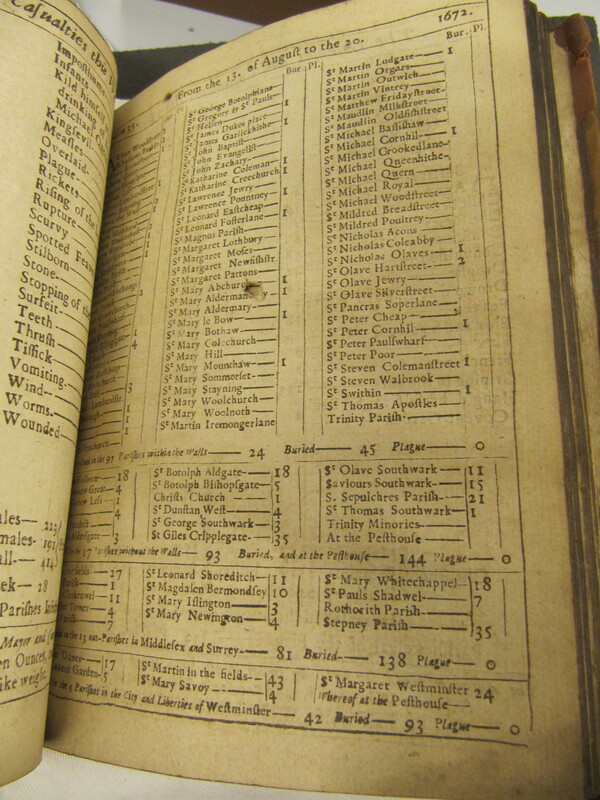 Casualties this
Impostume
Infants
Kild
drinking
Kingsevil
Measles
Overlaid
Plague
Rickets
Rising of the
Rupture
Scurvy
Spotted Feav
Stilborn
Stone
Stopping of
Surfeit
Teeth
Thrush
Tissick
Vomiting
Wind
Worms
Wounded
From the 13. of August to the 20. 1672.
Bur. Pl.
Sᵗ George Botolphlane
Sᵗ Gregory by Sᵗ Pauls
Sᵗ Hellen 1
Sᵗ James Dukes place
Sᵗ James Garlickhithe 1
Sᵗ John Baptist
Sᵗ John Evangelist
Sᵗ John Zachary
Sᵗ Katharine Coleman 1
Sᵗ Katharine Creechurch 1
Sᵗ Lawrence Jewry
Sᵗ Lawrence Pountney 1
Sᵗ Leonard Eastcheap
Sᵗ Leonard Fosterlane 1
Sᵗ Magnus Parish
Sᵗ Margaret Lothbury
Sᵗ Margaret Moses
Sᵗ Margaret Newfishstr.
Sᵗ Margaret Pattons
Sᵗ Mary Abchurch 1
Sᵗ Mary Aldermanbury 1
Sᵗ Mary Aldermary
Sᵗ Mary le Bow 1
Sᵗ Mary Bothaw
Sᵗ Mary Colechurch
Sᵗ Mary Hill
Sᵗ Mary Mounthaw 1
Sᵗ Mary Sommerset
Sᵗ Mary Stayning
Sᵗ Mary Woolchurch
Sᵗ Mary Woolnoth
Sᵗ Martin Iremongerlane
Bur. Pl.
Sᵗ Martin Ludgate 1
Sᵗ Martin Orgars
Sᵗ Martin Outwich
Sᵗ Martin Vintrey
Sᵗ Matthew Fridaystreet
Sᵗ Maudlin Milkstreet
Sᵗ Maudlin Oldfishstreet
Sᵗ Michael Bassishaw
Sᵗ Michael Cornhil 1
Sᵗ Michael Crookedlane
Sᵗ Michael Queenhithe
Sᵗ Michael Quern
Sᵗ Michael Royal
Sᵗ Michael Woodstreet
Sᵗ Mildred Breadstreet
Sᵗ Mildred Poultrey
Sᵗ Nicholas Acons
Sᵗ Nicholas Coleabby
Sᵗ Nicholas Olaves 1
Sᵗ Olave Hartstreet 2
Sᵗ Olave Jewry
Sᵗ Olave Silverstreet
Sᵗ Pancras Soperlane
Sᵗ Peter Cheap
Sᵗ Peter Cornhil 1
Sᵗ Peter Paulswharf
Sᵗ Peter Poor
Sᵗ Steven Colemanstreet 1
Sᵗ Steven Walbrook
Sᵗ Swithin 1
Sᵗ Thomas Apostles
Trinity Parish
in the 97 Parishes within the Walls 24 Buried 45 Plague 0
18
4
1
4
3
Sᵗ Botolph Aldgate 18
Sᵗ Botolph Bishopsgate 5
Christs Church 1
Sᵗ Dunstan West 4
Sᵗ George Southwark 3
Sᵗ Giles Cripplegate 35
Sᵗ Olave Southwark 11
Saviours Southwark 15
S. Sepulchres Parish 21
Sᵗ Thomas Southwark 1
Trinity Minories
At the Pesthouse
17 Parishes without the Walls 93 Buried, and at the Pesthouse 144 Plague 0
27
1
11
4
7
Sᵗ Leonard Shoreditch 11
Sᵗ Magdalen Bermondsey 10
Sᵗ Mary Islington 3
Sᵗ Mary Newington 4
Sᵗ Mary Whitechappel 18
Sᵗ Pauls Shadwel 7
Rothorith Parish
Stepney Parish 35
in the 13 out-Parishes in Middlesex and Surrey 81 Buried 138 Plague 0
Danes 17
Garden 5
Sᵗ Martin in the fields 43
Sᵗ Mary Savoy 4
Sᵗ Margaret Westminster 24
Whereof at the Pesthouse
in the 5 Parishes in the City and Liberties of Westminster 42 Buried 93 Plague 0
ek 28
Parishes
Mayor and
en Ounces,
like weight.